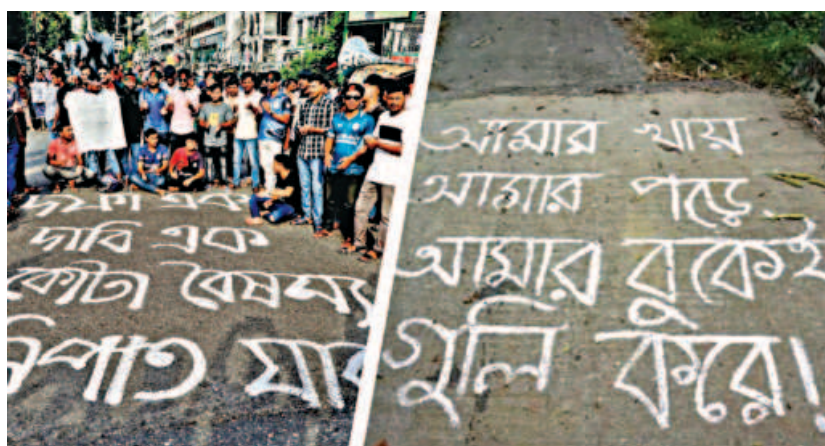 দফা এক
দাবি এক
কোটা বৈষম্য
নিপাত যাক
আমার খায়
আমার পড়ে
আমার বুকেই
গুলি করে!